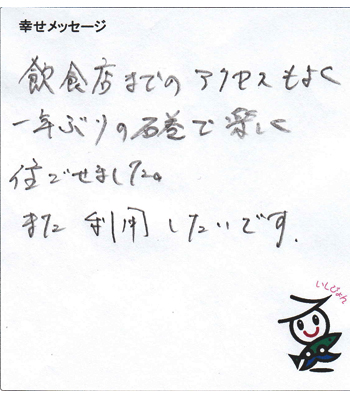 幸せメッセージ
飲食店までのアクセスもよく
一年ぶりの石巻で楽しく
住ごせました。
また利用したいです.
いしぴょん